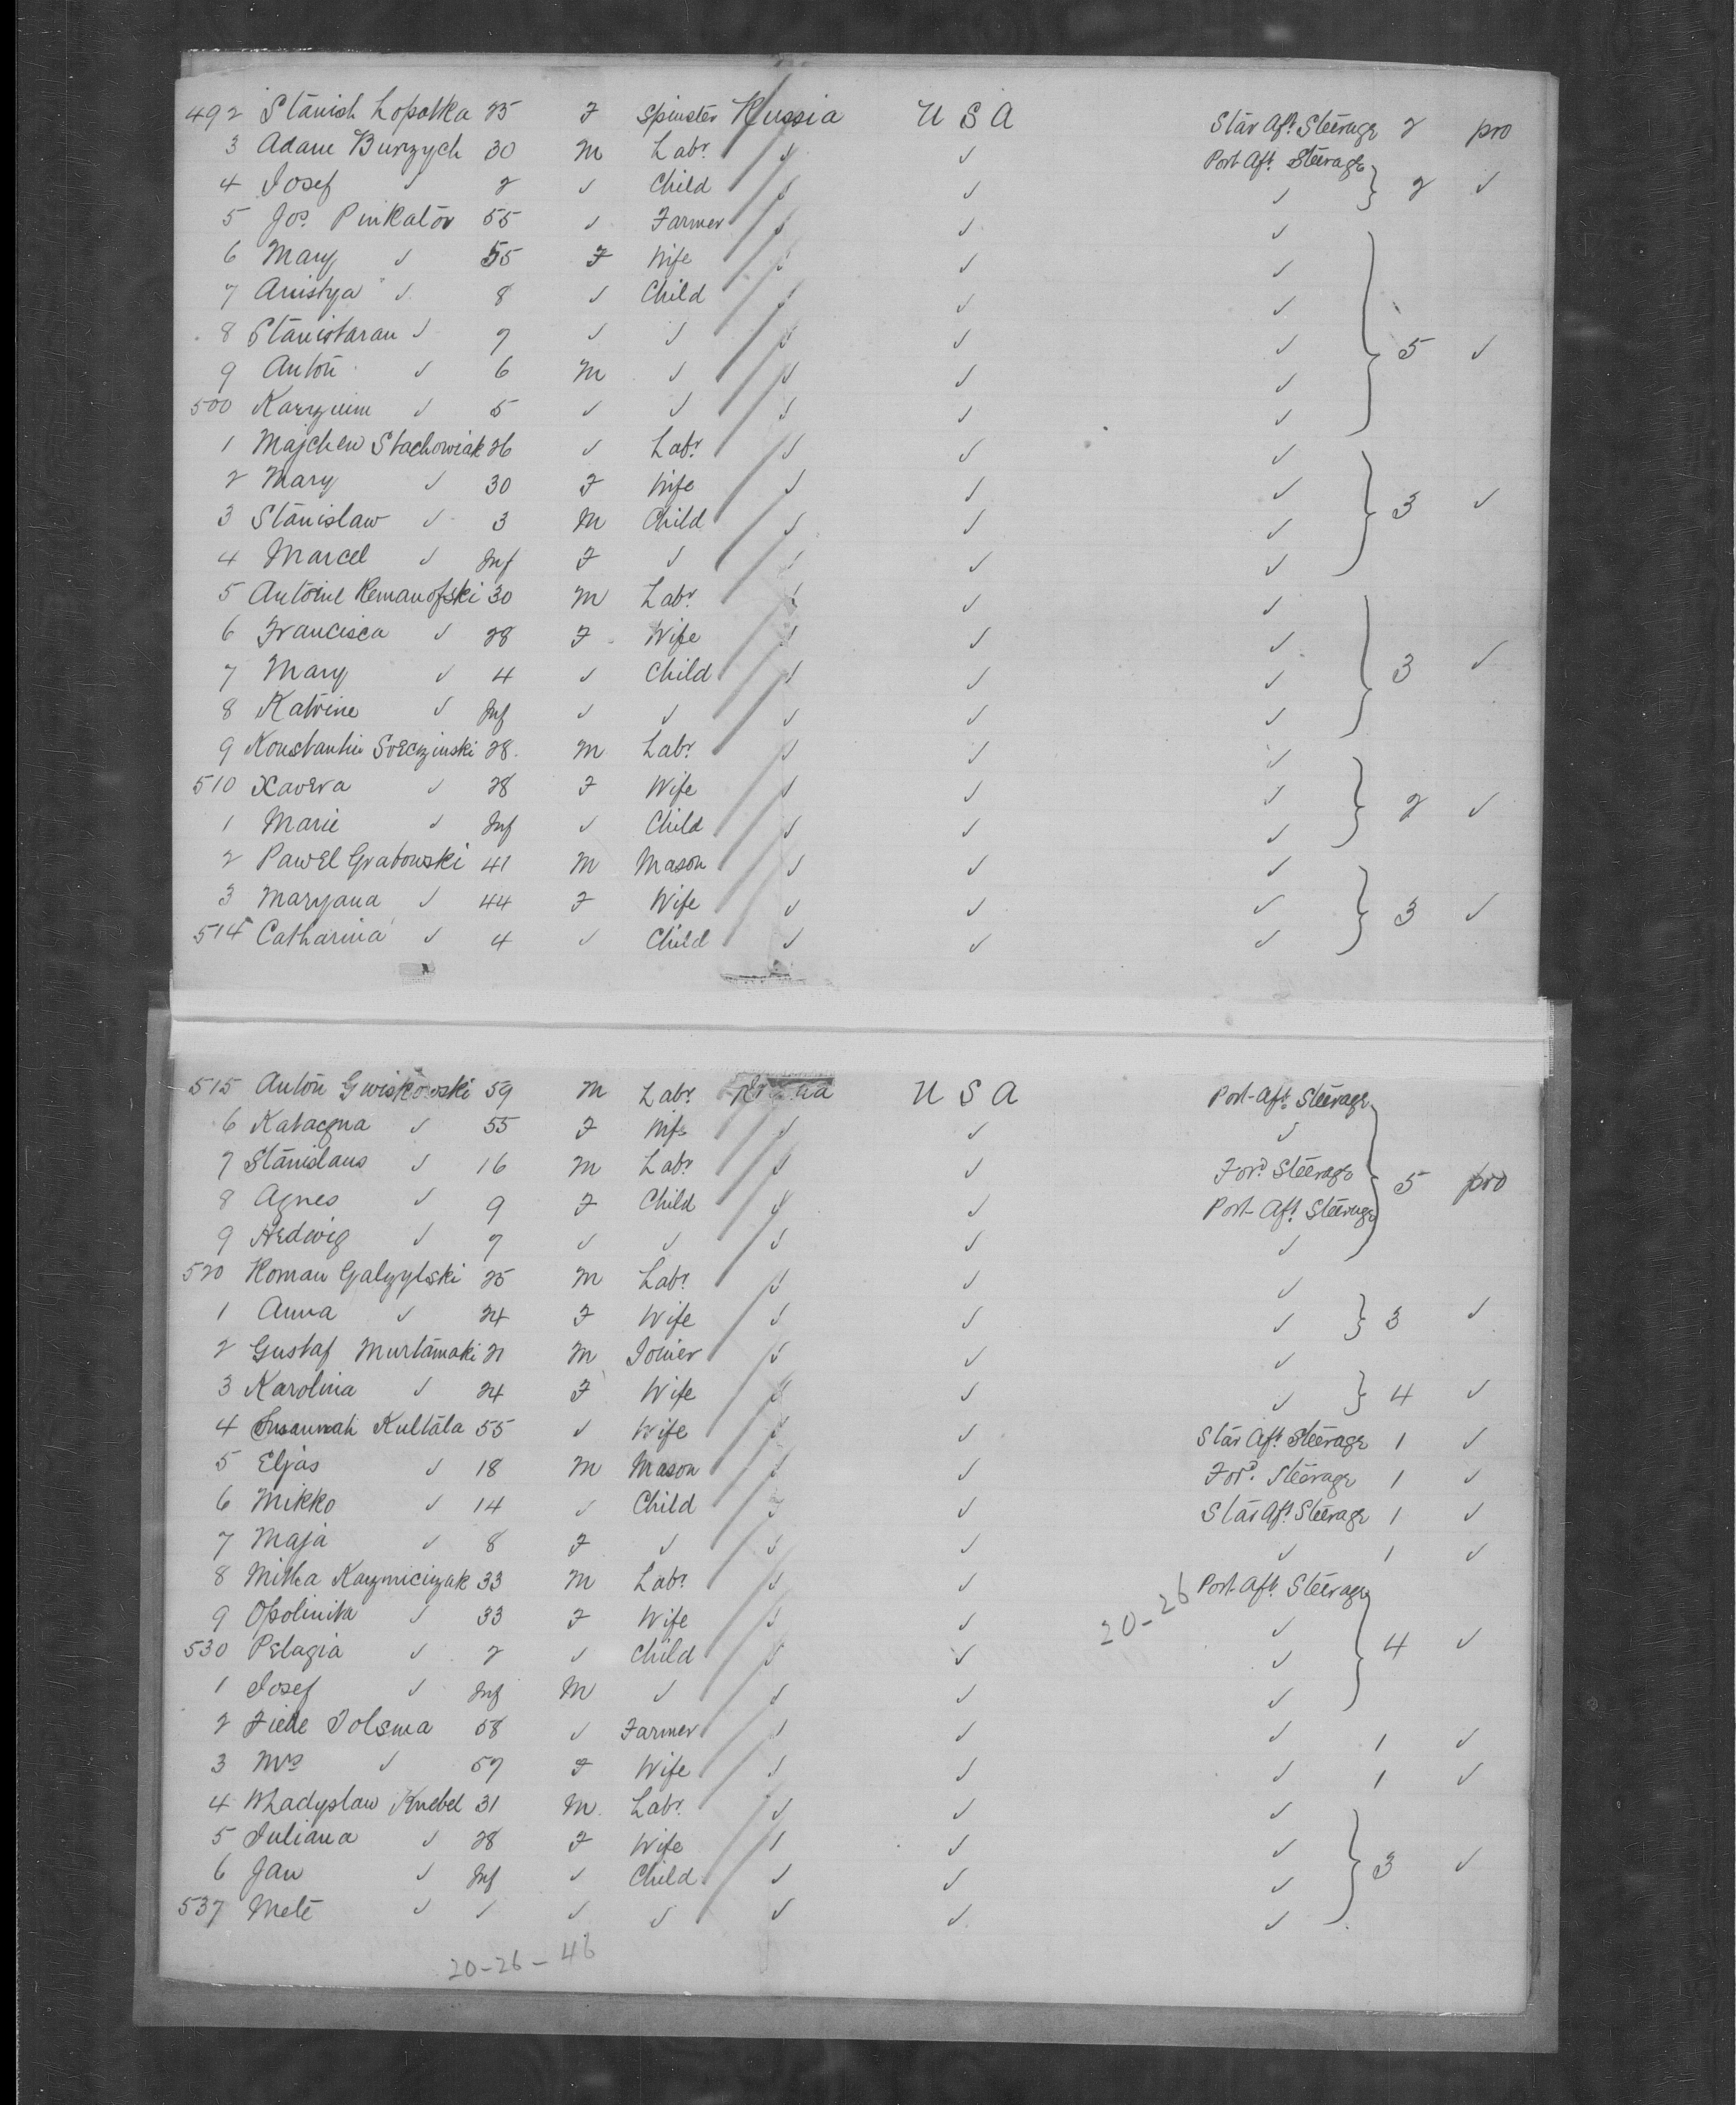 492 Stanish Lopatka 25 F Spinster Russia U S A Star Aft. Steerage 2 pro
3 Adam Burzych 30 M Labr. ✓ ✓ Port Aft. Steerage
4 Josef ✓ 2 ✓ Child ✓ ✓ ✓ 2 ✓
5 Jos. Pinkator 55 ✓ Farmer ✓ ✓ ✓
6 Mary ✓ 55 F Wife ✓ ✓ ✓
7 Anistya ✓ 8 ✓ Child ✓ ✓ ✓
8 Stanistaran ✓ 7 ✓ ✓ ✓ ✓ ✓ 5 ✓
9 Anton ✓ 6 M ✓ ✓ ✓ ✓
500 ✓ 5 ✓ ✓ ✓ ✓ ✓
1 Majchew Stachowiak 26 ✓ Labr. ✓ ✓ ✓
2 Mary ✓ 30 F Wife ✓ ✓ ✓
3 Stanislaw ✓ 3 M Child ✓ ✓ ✓ 3 ✓
4 Marcel ✓ Inf F ✓ ✓ ✓ ✓
5 Antoine Remanofski 30 M Labr. ✓ ✓ ✓
6 Francisca ✓ 28 F Wife ✓ ✓ ✓
7 Mary ✓ 4 ✓ Child ✓ ✓ ✓ 3 ✓
8 Katrine ✓ Inf ✓ ✓ ✓ ✓ ✓
9 Konstantin Soeczinski 28 M Labr. ✓ ✓ ✓
510 Xavera ✓ 28 F Wife ✓ ✓ ✓ 2 ✓
1 Marie ✓ Inf ✓ Child ✓ ✓ ✓
2 Pawel Grabowski 41 M Mason ✓ ✓ ✓
3 Maryana ✓ 44 F Wife ✓ ✓ ✓ 3 ✓
514 Catharina ✓ 4 ✓ Child ✓ ✓ ✓
515 Anton Gwiskowski 59 M Labr. U S A Port-Aft. Steerage
6 Katacyna ✓ 55 F Wife ✓ ✓ ✓
7 Stanislaus ✓ 16 M Labr. ✓ ✓ Ford. Steerage 5 pro
8 Agnes ✓ 9 F Child ✓ ✓ Port-Aft. Steerage
9 Hedwig ✓ 7 ✓ ✓ ✓ ✓ ✓
520 Roman Galzylski 25 M Labr. ✓ ✓ ✓
1 Anna ✓ 24 F Wife ✓ ✓ ✓ 3 ✓
2 Gustaf Murtamaki 21 M Joiner ✓ ✓ ✓
3 Karolina ✓ 24 F Wife ✓ ✓ ✓ 4 ✓
4 Susannah Kultala 55 ✓ Wife ✓ ✓ Star Aft. Steerage 1 ✓
5 Eljas ✓ 18 M Mason ✓ ✓ Ford. Steerage 1 ✓
6 Mikko ✓ 14 ✓ Child ✓ ✓ Star Aft. Steerage 1 ✓
7 Maja ✓ 8 F ✓ ✓ ✓ ✓ 1 ✓
8 Mitha 33 M Labr. ✓ ✓ Port-Aft. Steerage
20-26
9 Opolinita ✓ 33 F Wife ✓ ✓ ✓
530 Pelagia ✓ 2 ✓ Child ✓ ✓ ✓ 4 ✓
1 Josef ✓ Inf M ✓ ✓ ✓ ✓
2 Tolsma 58 ✓ Farmer ✓ ✓ ✓ 1 ✓
3 Mrs ✓ 57 F Wife ✓ ✓ ✓ 1 ✓
4 Whadyslaw Knebel 31 M Labr. ✓ ✓ ✓
5 Juliana ✓ 28 F Wife ✓ ✓ ✓
6 Jan ✓ Inf ✓ Child ✓ ✓ ✓ 3 ✓
537 Mete ✓ ✓ ✓ ✓ ✓ ✓ ✓
20-26-46